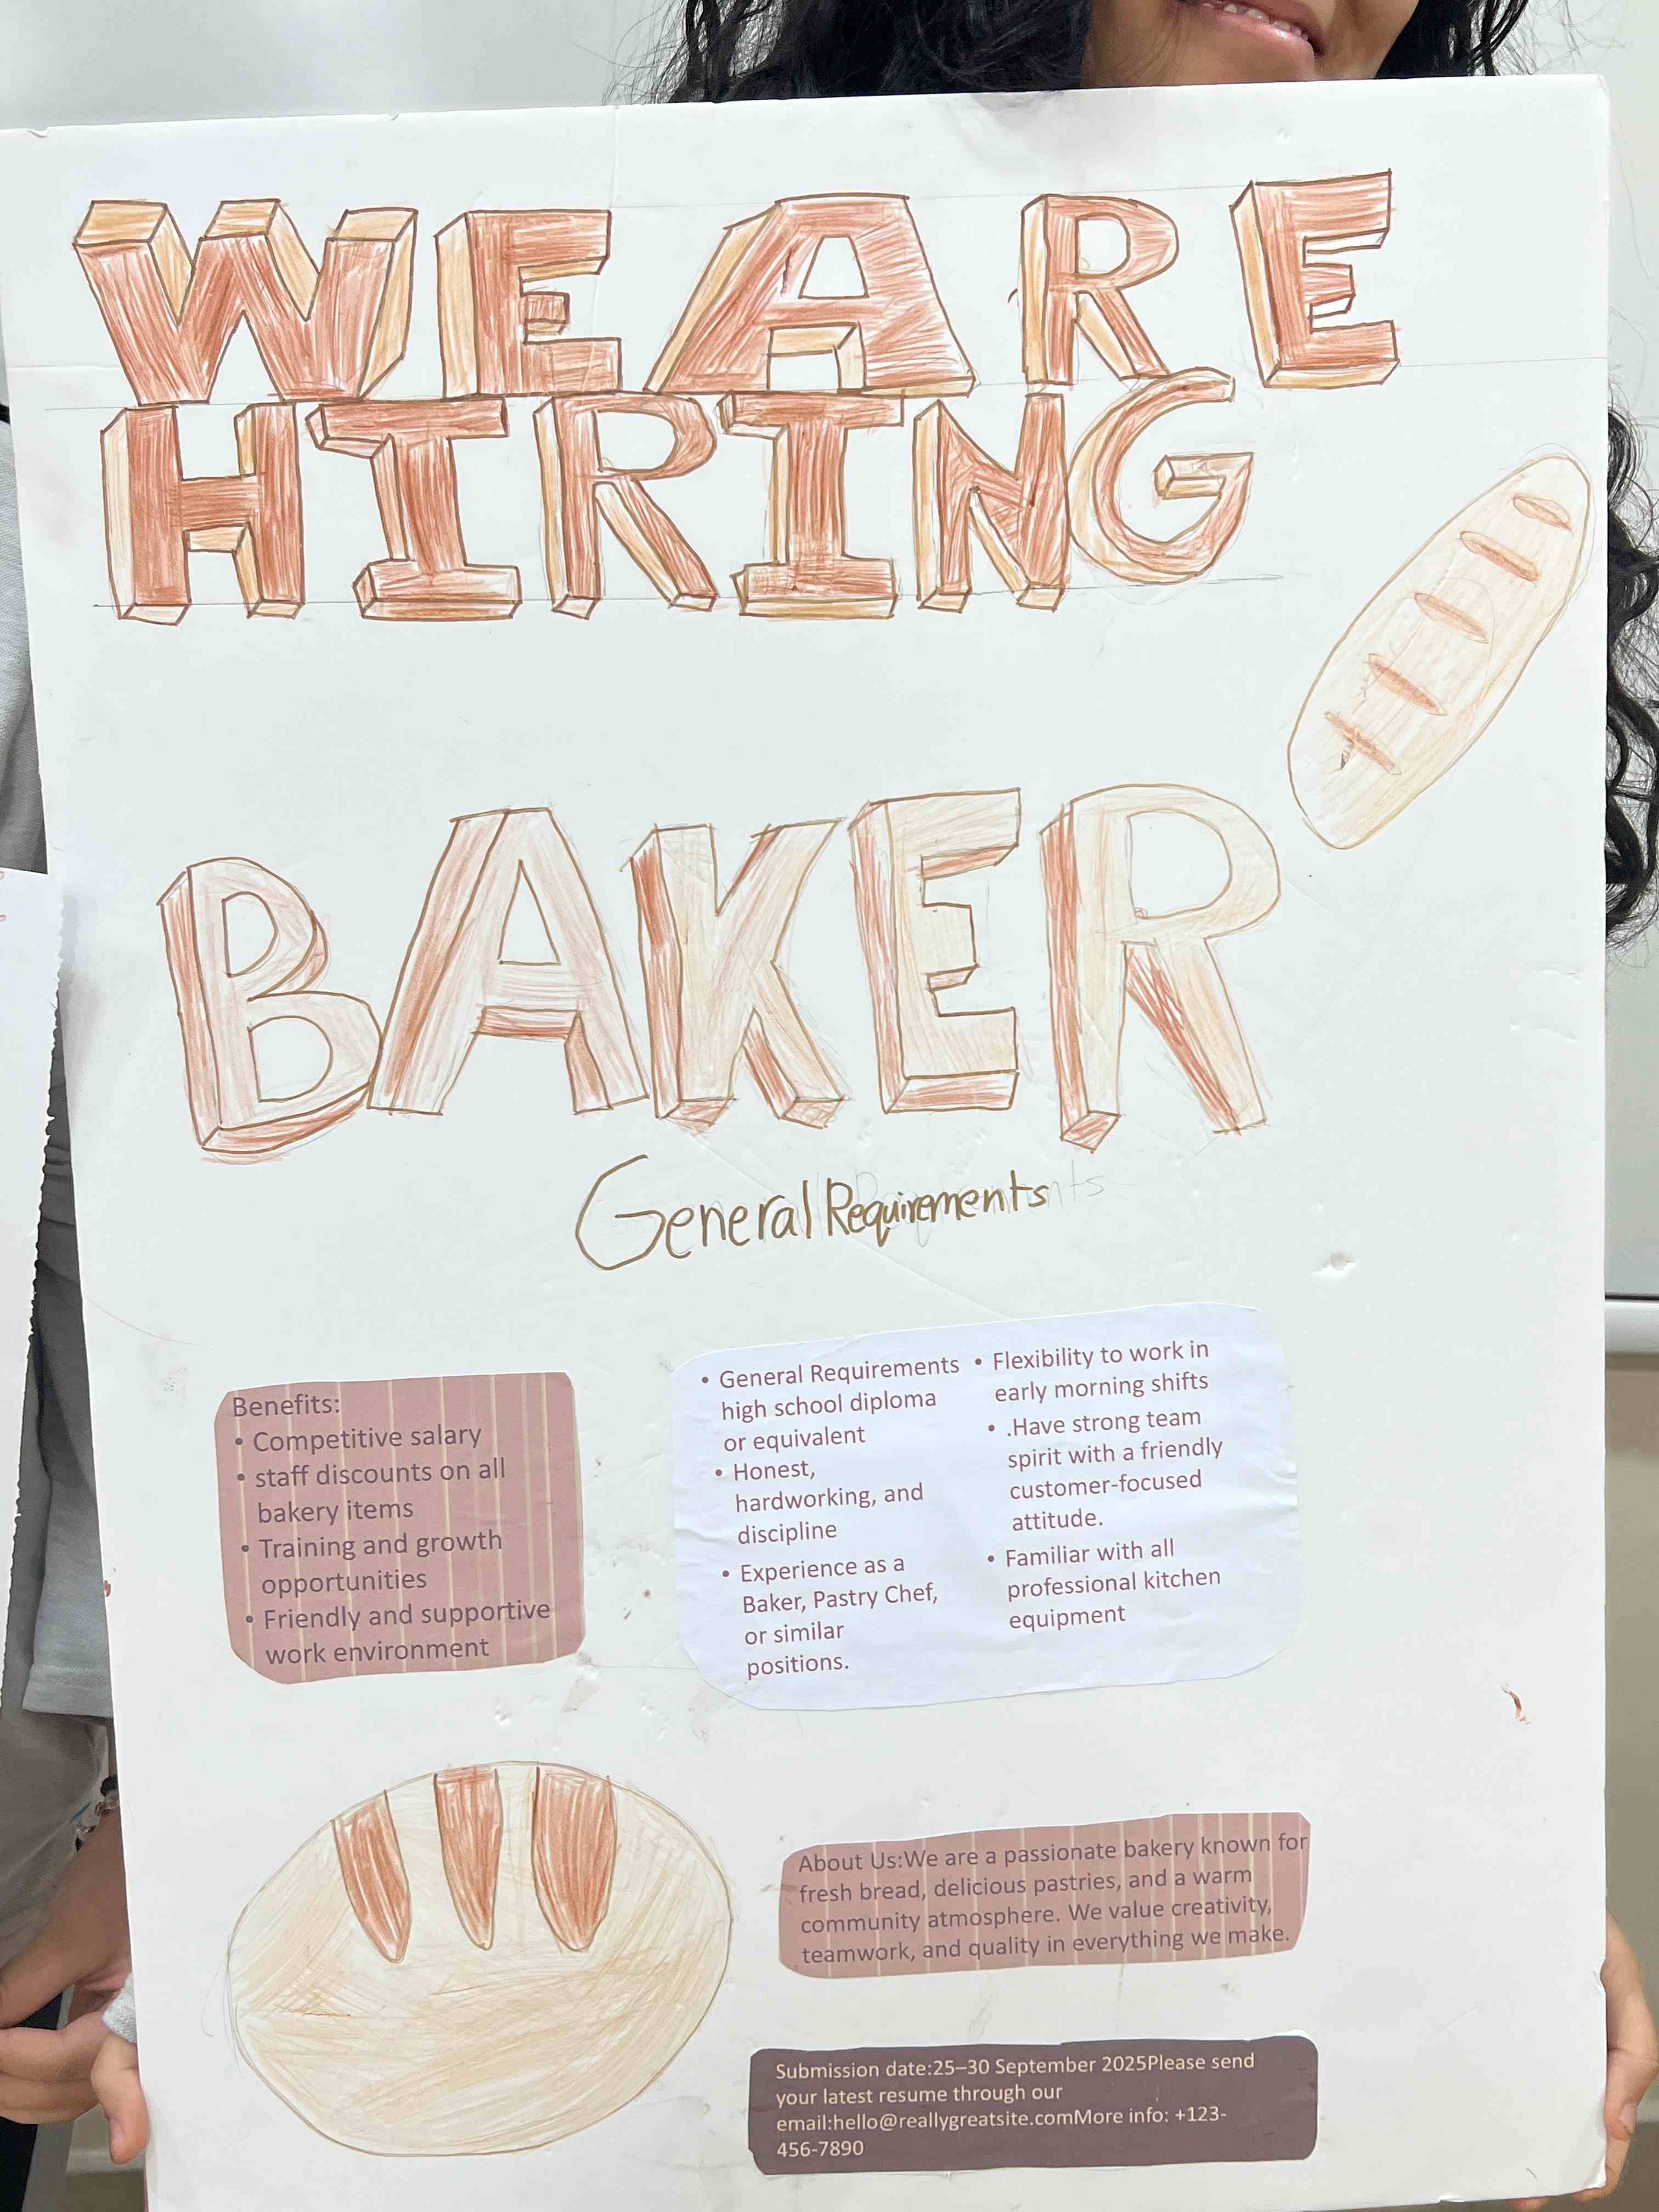 WE ARE
HIRING
BAKER
General Requirements
Benefits:
• Competitive salary
• staff discounts on all
bakery items
• Training and growth
opportunities
• Friendly and supportive
work environment
• General Requirements
high school diploma
or equivalent
• Honest,
hardworking, and
discipline
• Experience as a
Baker, Pastry Chef,
or similar
positions.
• Flexibility to work in
early morning shifts
• .Have strong team
spirit with a friendly
customer-focused
attitude.
• Familiar with all
professional kitchen
equipment
About Us:We are a passionate bakery known for
fresh bread, delicious pastries, and a warm
community atmosphere. We value creativity,
teamwork, and quality in everything we make.
Submission date:25–30 September 2025Please send
your latest resume through our
email:hello@reallygreatsite.comMore info: +123-
456-7890